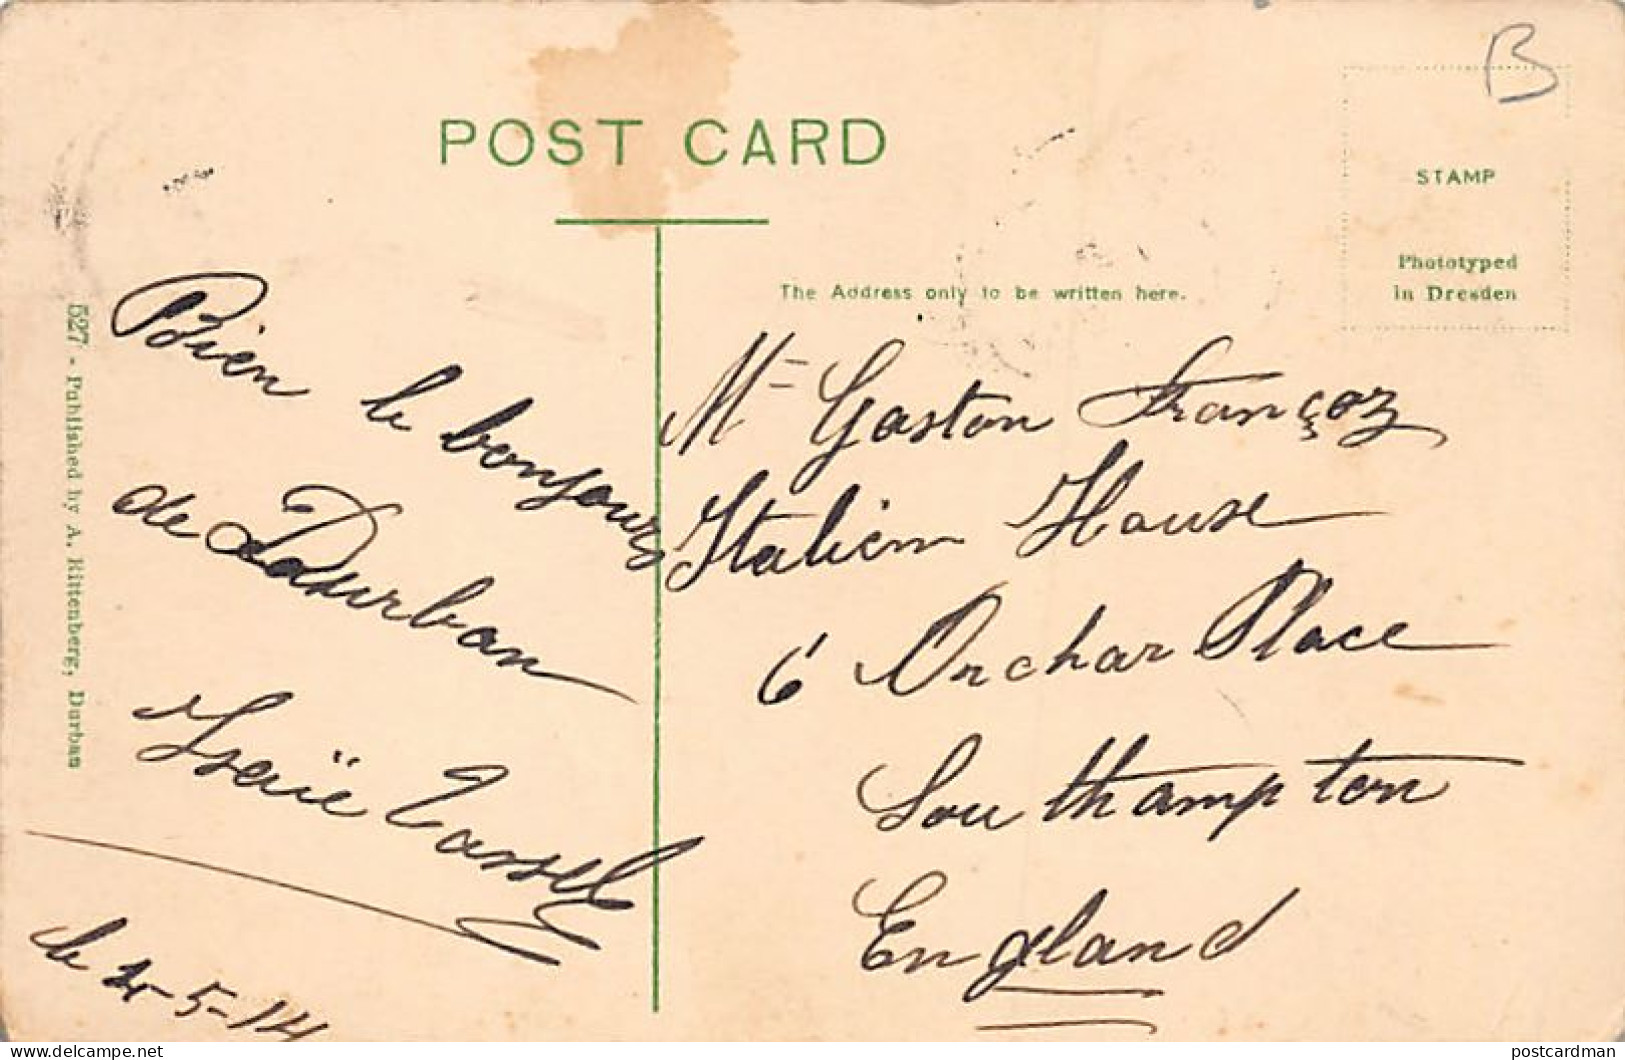 B
POST CARD
STAMP
Phototyped
in Dresden
The Address only to be written here.
527 - Published by A. Rittenberg, Durban
Bien le bonjour
de Dourban
Isaïe Tassel
le 4-5-14
Mr Gaston Françoz
Italien House
6 Orchar Place
Southampton
England
postcardman